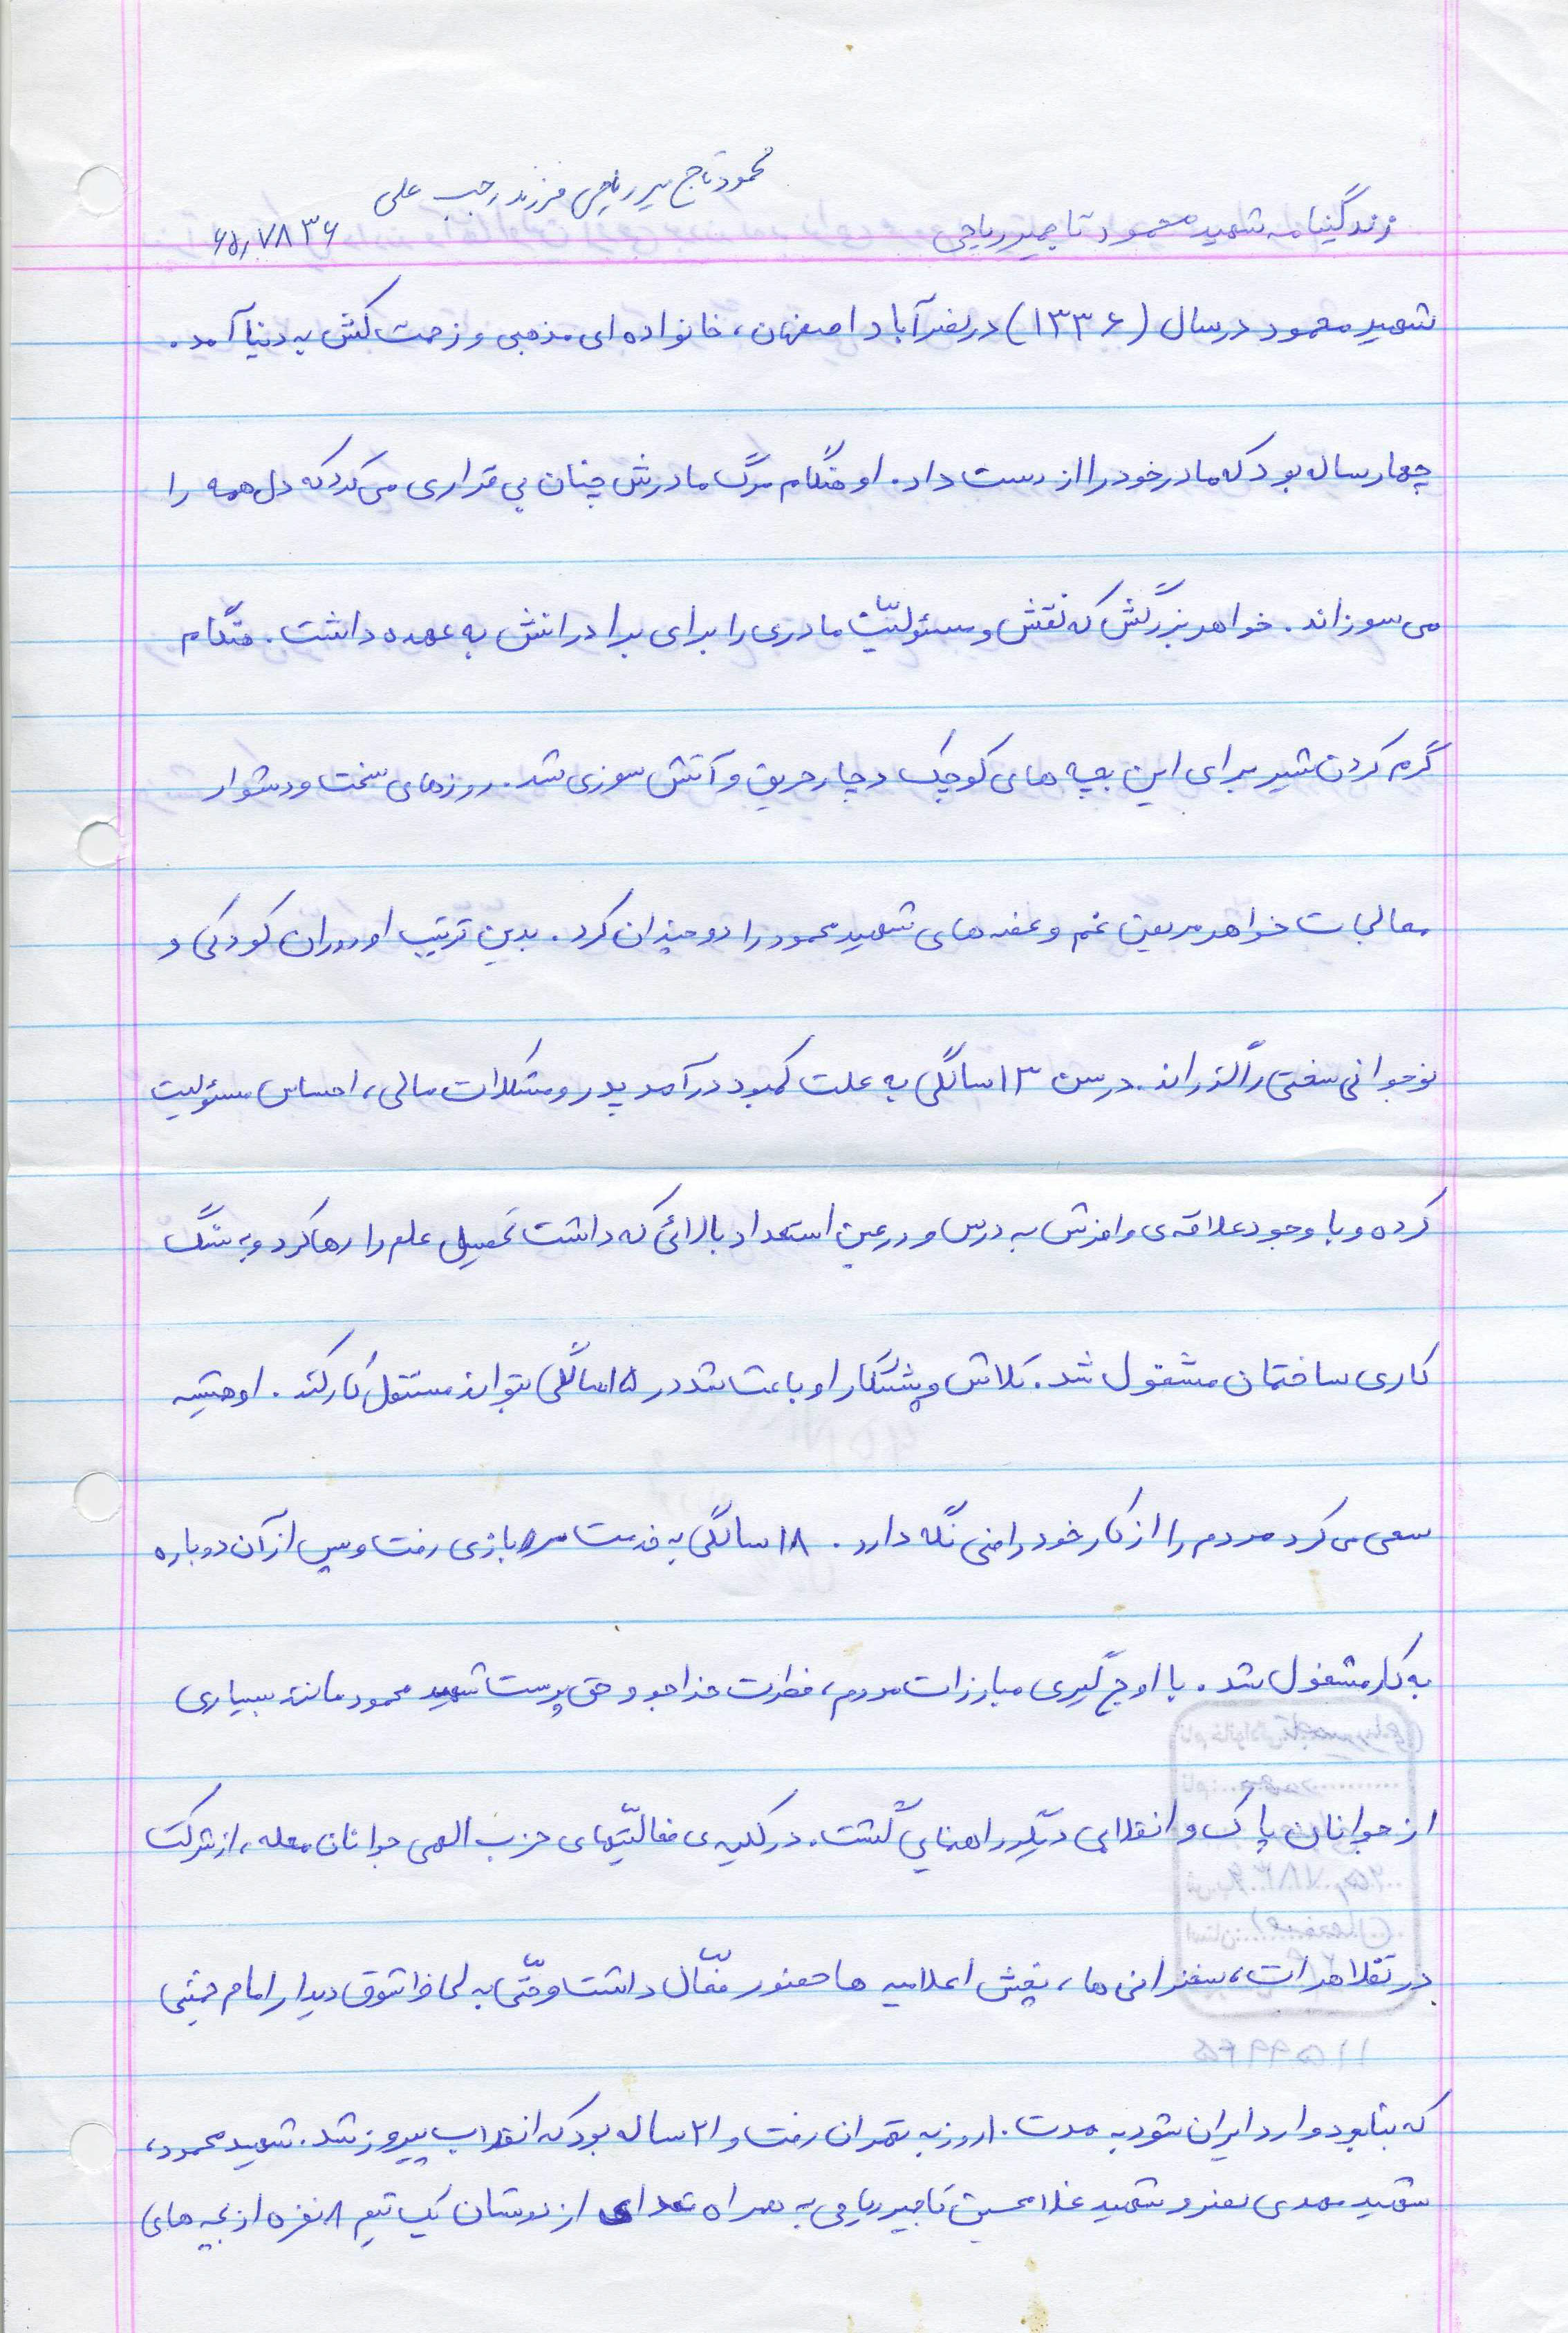 محمود تاج میر ریاحی فرزند رجب علی
زندگینامه شهید محمود تاجمیر ریاحی
۶۵٫۷۸۳۶
شهید محمود در سال (۱۳۳۶) در نصرآباد اصفهان، خانواده ای مذهبی و زحمت کش به دنیا آمد.
چهار ساله بود که مادر خود را از دست داد. او هنگام مرگ مادرش چنان بی قراری می کرد که دل همه را
می سوزاند. خواهر بزرگش که نقش و مسئولیّت مادری را برای برادرانش به عهده داشت. هنگام
گرم کردن شیر برای این بچه های کوچک دچار حریق و آتش سوزی شد. روزهای سخت و دشوار
معالجات خواهر مریض غم و غصه های شهید محمود را دو چندان کرد. بدین ترتیب او دوران کودکی و
نوجوانی سختی را گذراند. در سن ۱۳ سالگی به علت کمبود درآمد پدر و مشکلات مالی، احساس مسئولیت
کرده و با وجود علاقه ی وافرش به درس و در عین استعداد بالائی که داشت تحصیل علم را رها کرد و به سنگ
کاری ساختمان مشغول شد. تلاش و پشتکار او باعث شد در ۱۵ سالگی بتواند مستقل کار کند. او همیشه
سعی می کرد مردم را از کار خود راضی نگه دارد. ۱۸ سالگی به خدمت سربازی رفت و پس از آن دوباره
به کار مشغول شد. با اوج گیری مبارزات مردم، فطرت خداجو و حق پرست شهید محمود مانند بسیاری
از جوانان پاک و انقلابی دیگر راهنمایی گشت. در کلیه ی فعالیّتهای حزب الهی جوانان محله، از شرکت
در تظاهرات، سخنرانی ها، پخش اعلامیه ها حضور فعّال داشت و حتّی به لحاظ شوق دیدار امام خمینی
که بنا بود وارد ایران شود به مدت ۱۰ روز به تهران رفت و ۲۱ ساله بود که انقلاب پیروز شد. شهید محمود،
شهید مهدی نصر و شهید غلامحسین تاجمیر ریاحی به همراه تعدای از دوستان یک تیم ۸ نفره از بچه های